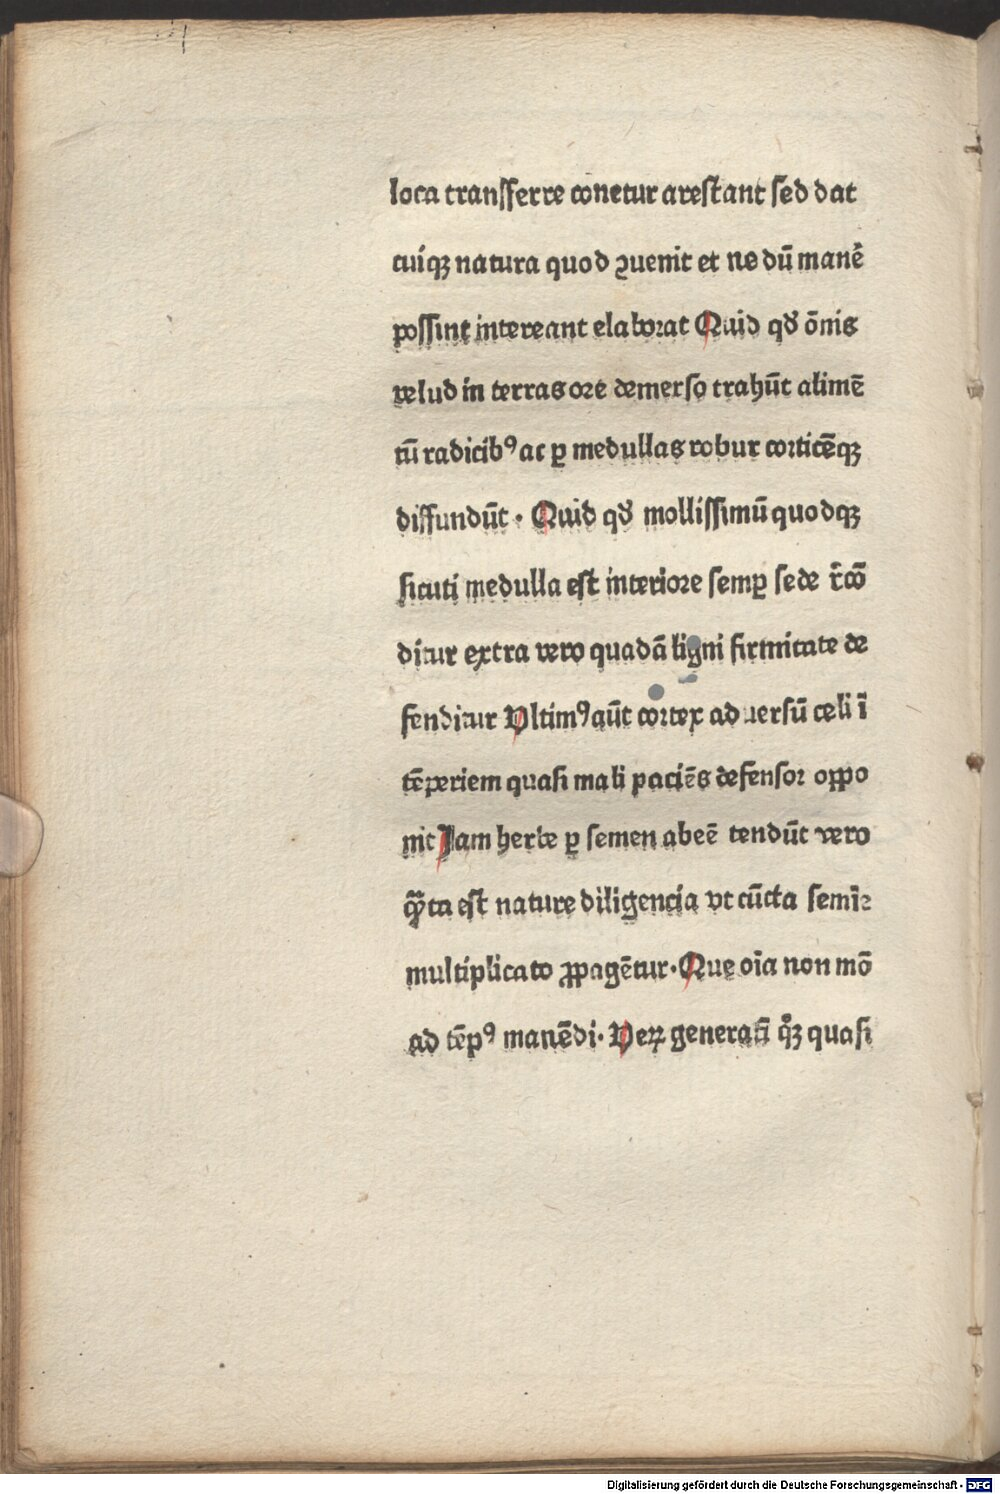 loca transſferre conetur areſtant ſed dat
cuiqꝫ natura quod ꝯuenit et ne dū manē
poſſint intereant elaborat Quid qꝺ ōnis
velud in terras ore demerſo trahūt alimē
tū radicibꝰ ac ꝑ medullas robur corticēqꝫ
diffundūt · Quid qꝺ molliſſimū quodqꝫ
ſicuti medulla eſt interiore ſemꝑ ſede r̄cō
ditur extra vero quadā ligni firmitate de
fenditur Vltimꝰ aūt cortex aduerſū celi ī
tēperiem quaſi mali paciēs defenſor oꝓpo
nit Jam herbe ꝑ ſemen abeē tendūt vero
q̄ȝta eſt nature diligencia vt cūcta ſemīe
multiplicato ꝓpagētur · Que oīa non mō
ad tēpꝰ manēdi · Veꝝ generatī qͦȝ quaſi
Digitalisierung gefördert durch die Deutsche Forschungsgemeinschaft · DFG